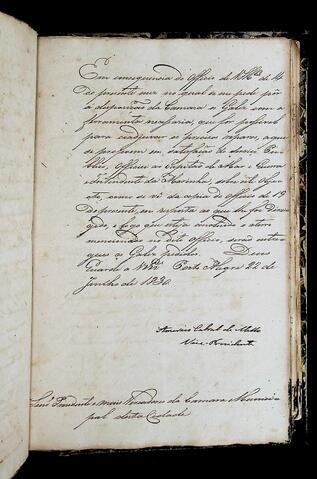 Em consequencia do Officio de VMces de 14
do presente mez no qual se me pede pôr
á disposição da Camara os Galés com a
ferramenta necessaria, que for possivel
para coadjuvar os precisos reparos, a que
se propoem em satisfação do
Officiei ao Capitão de Mar e Guerra
e Intendente da Marinha, sobre tal Obje-
cto, como se vê da copia do officio de 19
do presente, em resposta ao que lhe foi
gido, e logo que esteja concluido o
mencionado no dito officio, serão entre-
gues os Galés pedidos. Deos
Guarde a VMces Porto Alegre 22 de
Junho de 1830.
Americo Cabral de Mello
Vice-Presidente
Senres Presidente e mais Vereadores da Camara Munici-
pal desta Cidade